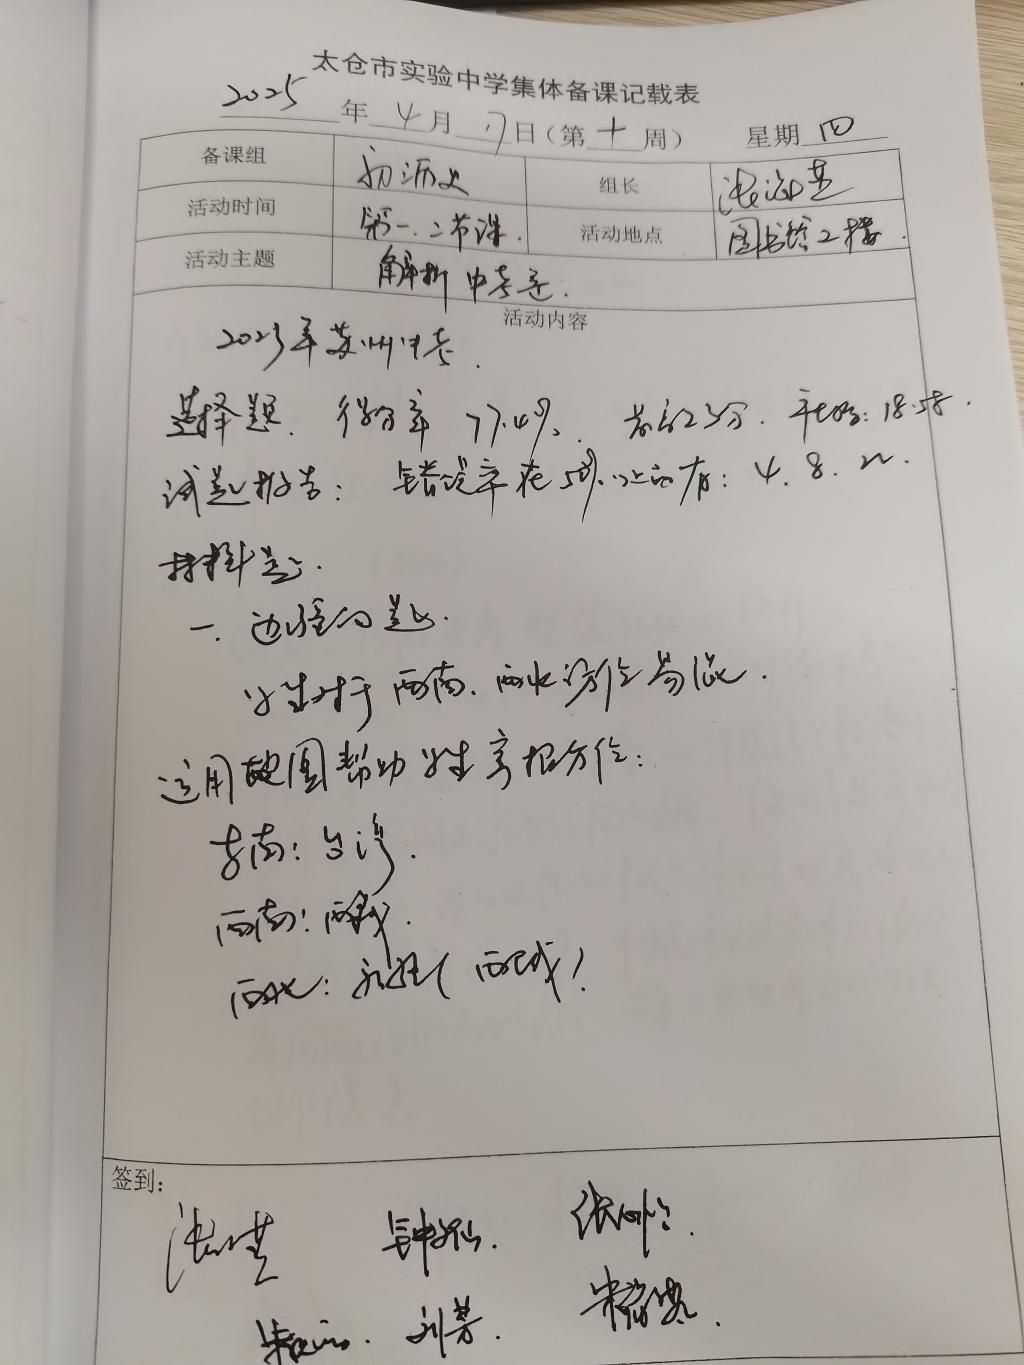 太仓市实验中学集体备课记载表
2025年4月17日(第十周) 星期四
备课组 初三历史 组长
活动时间 第一、二节课. 活动地点 图书馆2楼.
活动主题 解析中考题.
活动内容
2023年苏州中考.
选择题. 得分率77.4%. 24分. 平均: 18.58.
试题报告: 错误率在50%以上的有: 4. 8. 22.
材料题.
一. 边疆问题.
学生对于西南、西北方位易混.
运用地图帮助学生掌握方位:
东南: 台湾.
西南: 西藏.
西北: 新疆(西域)
签到:
刘芳.